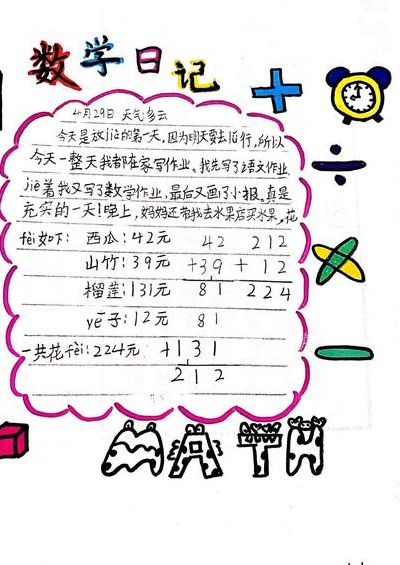 数学日记
4月29日 天气多云
今天是放jià的第一天,因为明天要去旅行,所以
今天一整天我都在家写作业。我先写了语文作业
jiē着我又写了数学作业,最后又画了小报。真是
充实的一天!晚上,妈妈还带我去水果店买水果,花
fèi如下: 西瓜:42元 42 212
山竹:39元 +39 +12
榴莲:131元 81 224
yē子:12元 81
一共花fèi:224元 +131
212
MATH